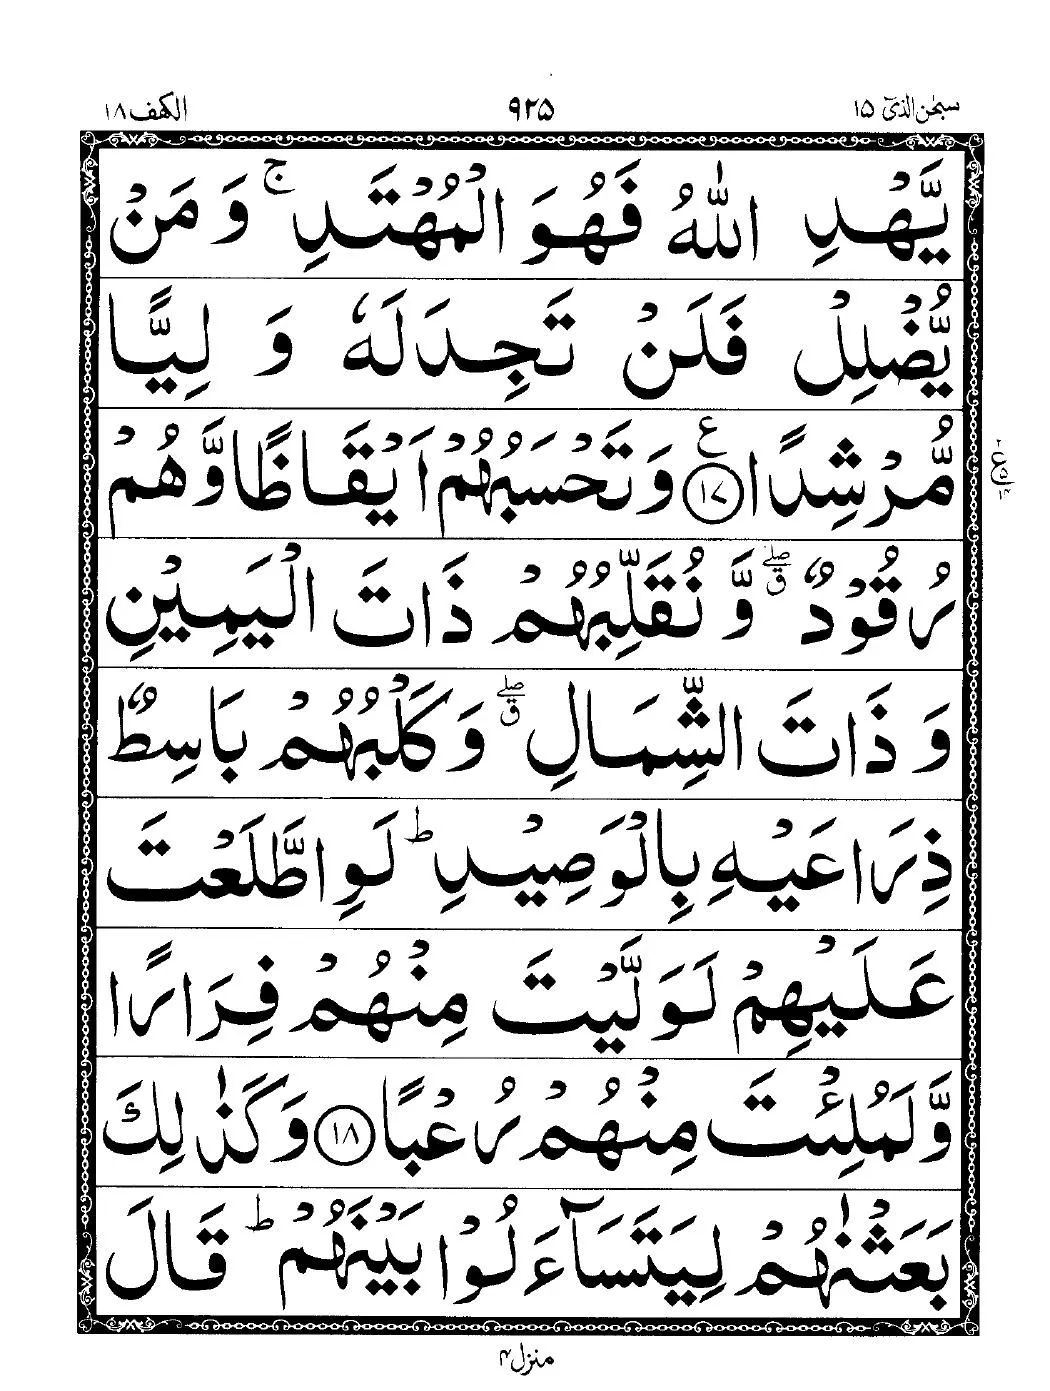 سبحٰن الذیٓ ۱۵
۹۲۵
الکهف ۱۸
يَّهْدِ اللّٰهُ فَهُوَ الْمُهْتَدِ ۚ وَ مَنْ
يُّضْلِلْ فَلَنْ تَجِدَ لَهٗ وَ لِيًّا
مُّرْشِدًا ﴿۱۷﴾ ع وَ تَحْسَبُهُمْ اَيْقَاظًا وَّ هُمْ
رُقُوْدٌ ۖۗ وَّ نُقَلِّبُهُمْ ذَاتَ الْيَمِيْنِ
وَ ذَاتَ الشِّمَالِ ۖۗ وَ كَلْبُهُمْ بَاسِطٌ
ذِرَاعَيْهِ بِالْوَصِيْدِ ؕ لَوِ اطَّلَعْتَ
عَلَيْهِمْ لَوَلَّيْتَ مِنْهُمْ فِرَارًا
وَّ لَمُلِئْتَ مِنْهُمْ رُعْبًا ﴿۱۸﴾ وَ كَذٰلِكَ
بَعَثْنٰهُمْ لِيَتَسَآءَلُوْا بَيْنَهُمْ ؕ قَالَ
منزل ۴